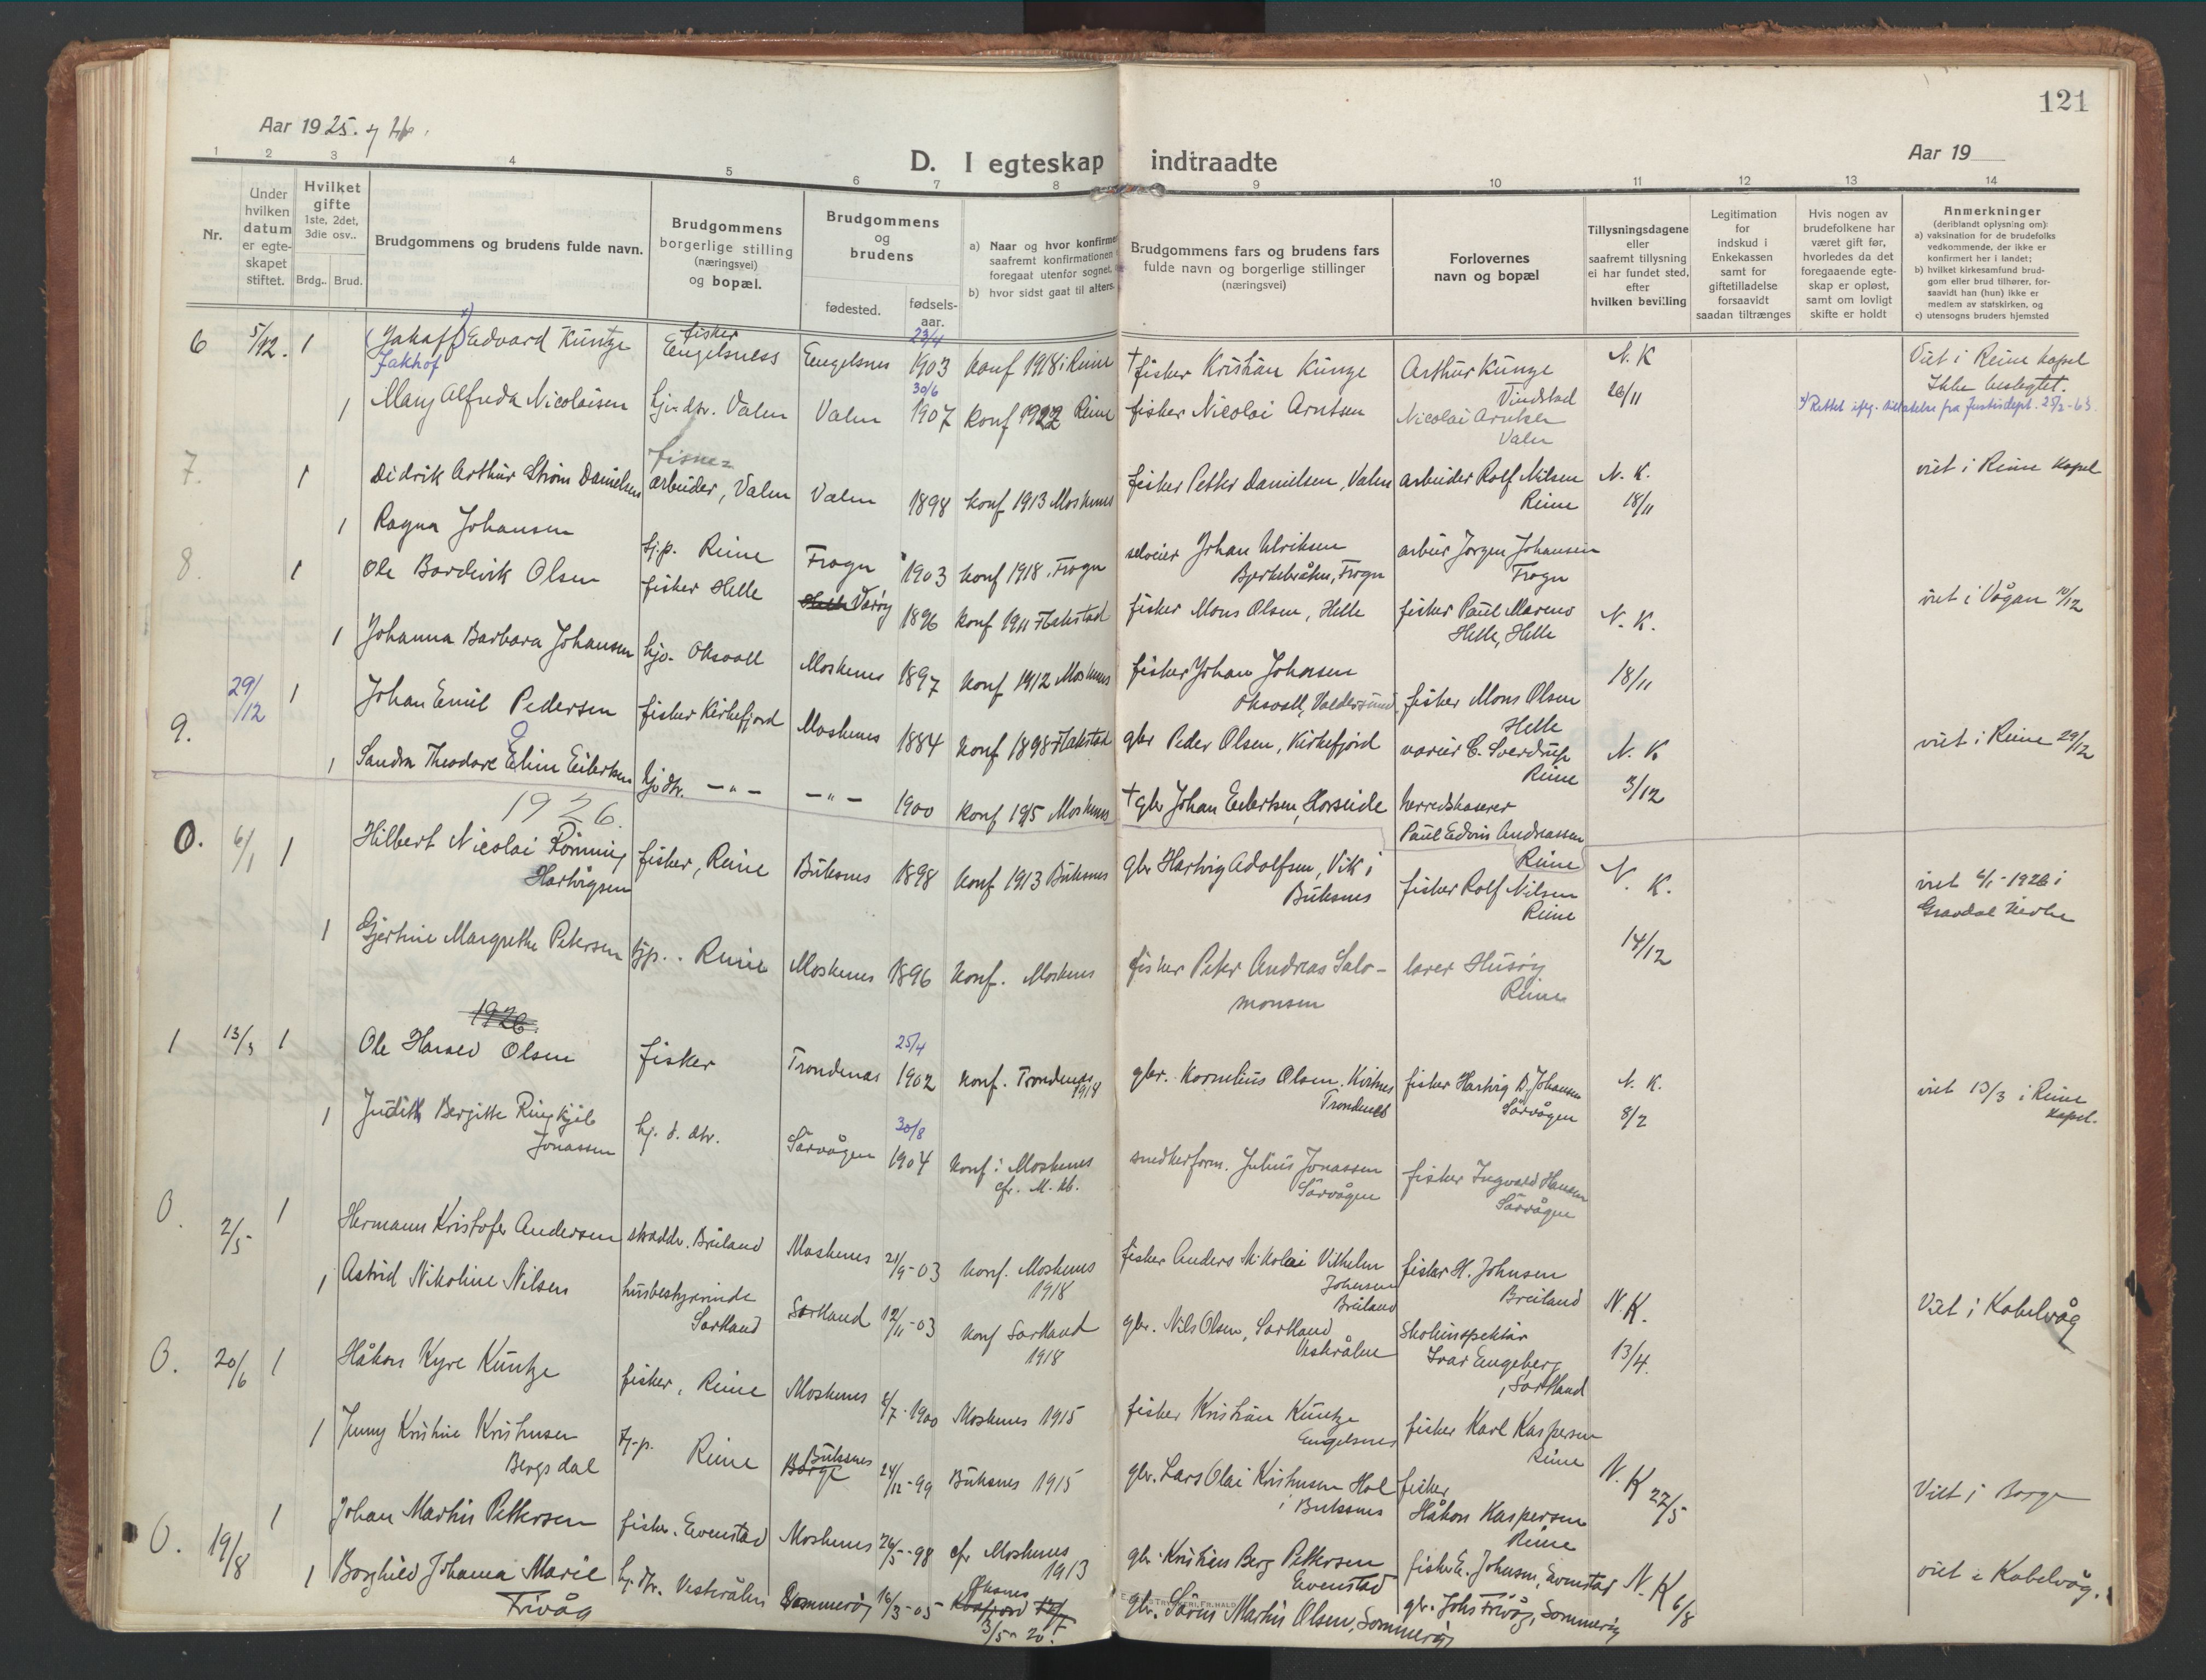 121
Aar 1925. og 26.
Aar 19
D. I egteskap indtraadte
1 2 3 4 5 6 7 8 9 10 11 12 13 14
Nr.
Under
hvilken
datum
er egte-
skapet
stiftet.
Hvilket
gifte
1ste, 2det,
3die osv..
Brdg.. Brud.
Brudgommens og brudens fulde navn.
Brudgommens
borgerlige stilling
(næringsvei)
og bopæl.
Brudgommens
og
brudens
fødested.
fødsels-
aar.
a) Naar og hvor konfirme
saafremt konfirmationen
foregaat utenfor sognet,
b) hvor sidst gaat til alters.
Brudgommens fars og brudens fars
fulde navn og borgerlige stillinger
(næringsvei)
Forlovernes
navn og bopæl
Tillysningsdagene
eller
saafremt tillysning
ei har fundet sted,
efter
hvilken bevilling
Legitimation
for
indskud i
Enkekassen
samt for
giftetilladelse
forsaavidt
saadan tiltrænges
Hvis nogen av
brudefolkene har
været gift før,
hvorledes da det
foregaaende egte-
skap er opløst,
samt om lovligt
skifte er holdt
Anmerkninger
(deriblandt oplysning om):
a) vaksination for de brudefolks
vedkommende, der ikke er
konfirmert her i landet;
b) hvilket kirkesamfund brud-
gom eller brud tilhører, for-
saavidt han (hun) ikke er
medlem av statskirken, og
c) utensogns bruders hjemsted
6 5/12. 1 (Jakoff) Edvard Küntze fisker Engelsness Engelsnes 23/4 1903 konf 1918 i Reine † fisker Kristian Künze Arthur Künze Vindstad N. K 26/11 Viet i Reine kapel
Jakhof
Ikke beslegtet.
1 Mary Alfreda Nicolaisen hj.dtr. Valen Valen 30/6 1907 konf 1922 Reine fisker Nicolai Arntsen Nicolai Arntsen Valen
x) Rettet iflg. tillatelse fra Justisdept. 25/2-63.
7. 1 Didrik Arthur Strøm Danielsen fisker arbeider, Valen Valen 1898 konf 1913 Moskenes fisker Petter Danielsen, Valen arbeider Rolf Nilsen Reine N. K. 18/11 viet i Reine kapel
1 Ragna Johansen tj.p. Reine Frogn 1903 konf 1918. Frogn selveier Johan Ulriksen Bjerkebråten, Frogn Jørgen Johansen Frogn
8. 1 Ole Bardevik Olsen fisker Helle Værøy 1896 konf 1911 Flakstad fisker Mons Olsen, Helle fisker Paul Helle, Helle N. K. 18/11 viet i Vågan 10/12
1 Johanna Barbara Johansen hjv. Oksvoll Moskenes 1897 konf 1912 Moskenes fisker Johan Johansen Oksvoll, Valdersund fisker Mons Olsen Helle
9. 29/12 1 Johan Emil Pedersen fisker Kirkefjord Moskenes 1884 konf 1898 Flakstad gbr Peder Olsen, Kirkefjord C. Sverdrup Reine N. K 3/12 viet i Reine 29/12
1 Sandra Theodore Elin Eilertsen hj.dtr. — „ — — „ — 1900 konf 1915 Moskenes † gbr Johan Eilertsen, Horseide herredskaserer Paul Edvin Andreassen Reine
1926.
0. 6/1 1 Hilbert Nicolai Rönning Hartvigsen fisker, Reine Buksnes 1898 konf 1913 Buksnes gbr Hartvig Adolfsen, Vik i Buksnes fisker Rolf Nilsen Reine N. K. 14/12 viet 6/1-1926 i Gravdal kirke
1 Gjertine Margrethe Petersen tjp. Reine Moskenes 1896 konf. Moskenes fisker Peter Andreas Salo- monsen lærer Husøy Reine
1926.
1 13/3 1 Ole Harald Olsen fisker Trondenæs 25/4 1902 konf. Trondenæs 1918 gbr. Kornelius Olsen. Kvitnes Trondenes fisker Hartvig D. Johansen Sörvågen N. K. 8/2 viet 13/3 i Reine kapel.
1 Judith Bergitte Ringkjöb Jonassen hj. d. dtr. Sörvågen 30/8 1904 konf i Moskenes cfr. M. kb. snedkerform. Julius Jonassen Sörvågen fisker Ingvald Hansen Sörvågen
0. 2/5 1 Hermann Kristofer Andersen skrædder. Breiland Moskenes 21/9-03 konf. Moskenes 1918 fisker Anders Nikolai Vilhelm Johnsen Breiland fisker H. Johnsen Breiland N. K. 13/4. Viet i Kabelvåg
1 Astrid Nikoline Nilsen husbestyrerinde Sortland Sortland 12/11-03 konf Sortland 1918 gbr. Nils Olsen, Sortland Vesterålen Skoleinspektør Ivar Engeberg, Sortland
0. 20/6 1 Håkon Kyre Küntze fisker, Reine Moskenes 8/7-1900 Moskenes 1915 fisker Kristian Küntze Engelsnes fisker Karl Kaspersen Reine N. K 27/5 Viet i Borge
1 Jenny Kristine Kristensen Bergsdal tj.p. Reine Borge Buksnes 24/12-99 Buksnes 1915 gbr. Lars Olai Kristensen Hol i Buksnes fisker Håkon Kaspersen Reine
0. 19/8 1 Johan Martin Pettersen fisker. Evenstad Moskenes 26/5-98 cfr Moskenes 1913 gbr. Kristian Berg Pettersen Evenstad fisker E. Johnsen, Evenstad N. K 6/8 viet i Kabelvåg.
1 Borghild Johanna Marie Frivåg hj.dtr. Vesterålen Sommerøy 16/3-05 Øksnes 3/5-20. gbr. Sörens Martin Olsen, Sommerøy gbr. Johs Frivåg, Sommerøy